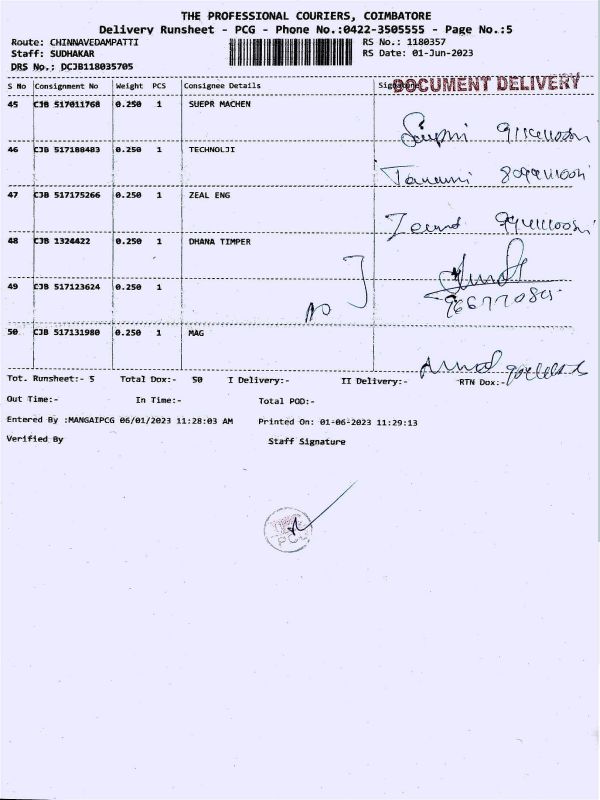 THE PROFESSIONAL COURIERS, COIMBATORE
Delivery Runsheet - PCG - Phone No.:0422-3505555 - Page No.:5
Route: CHINNAVEDAMPATTI RS No.: 1180357
Staff: SUDHAKAR RS Date: 01-Jun-2023
DRS No.: DCJB118035705
DOCUMENT DELIVERY
S No Consignment No Weight PCS Consignee Details
45 CJB 517011768 0.250 1 SUEPR MACHEN
46 CJB 517188483 0.250 1 TECHNOLJI
47 CJB 517175266 0.250 1 ZEAL ENG
48 CJB 1324422 0.250 1 DHANA TIMPER
49 CJB 517123624 0.250 1
50 CJB 517131980 0.250 1 MAG
Tot. Runsheet:- 5 Total Dox:- 50 I Delivery:- II Delivery:- RTN Dox:-
Out Time:- In Time:- Total POD:-
Entered By :MANGAIPCG 06/01/2023 11:28:03 AM Printed On: 01-06-2023 11:29:13
Verified By Staff Signature